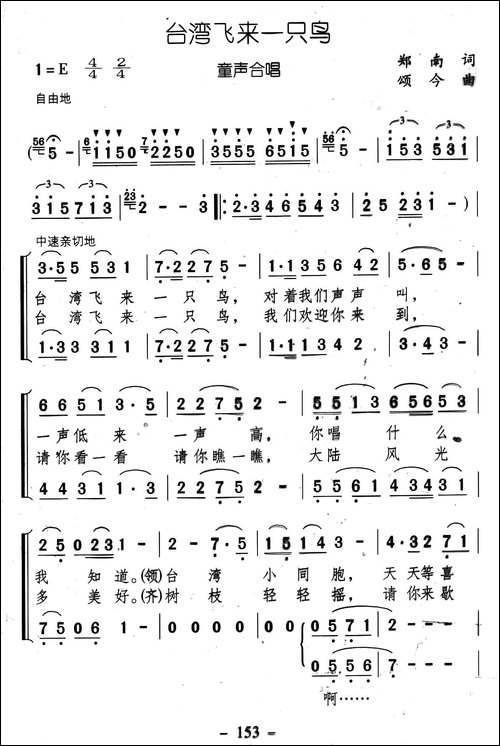 台湾飞来一只鸟
1=E 4/4 2/4 童声合唱 郑南 词
颂今 曲
自由地
中速亲切地
3·55 531 | 7·2275 | 1·135642 | 5·65- |
台湾飞来一只鸟，对着我们声声叫，
台湾飞来一只鸟，我们欢迎你来到，
1·33 311 | 5·7725 | 1·111342 | 3·43- |
6651 3·5 | 2275 2- | 5513 65653 |
一声低来一声高，你唱什么
请你看一看请你瞧一瞧，大陆风光
4431 1·3 | 2275 2- | 5561 43431 |
25 023 | 1--- | 2-7·5 | 15143 | 4·3271 |
我知道。(领)台湾小同胞，天天等喜
多美好。(齐)树枝轻轻摇，请你来歇
75 06 | 1--- | 0000 | 0000 | 0571 | 2--- |
0556 | 7--- |
啊……
- 153 -